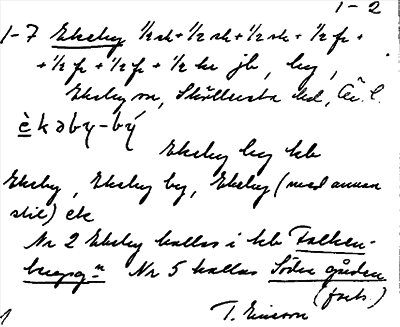 1-2
1-7 Ekeby ½ sk+½ sk+½ sk+½ fr+
+½ fr+½ fr+½ kr jb, by,
Ekeby sn, Skölle​rsta hd, Ör. l.
èkəby-bý
Ekeby by kb
Ekeby, Ekeby by, Ekeby (med annan
stil) ek
Nr 2 Ekeby kallas i kb Falken-
bergsgn Nr 5 kallas Södra gården
(forts.)
1 T. Ericson